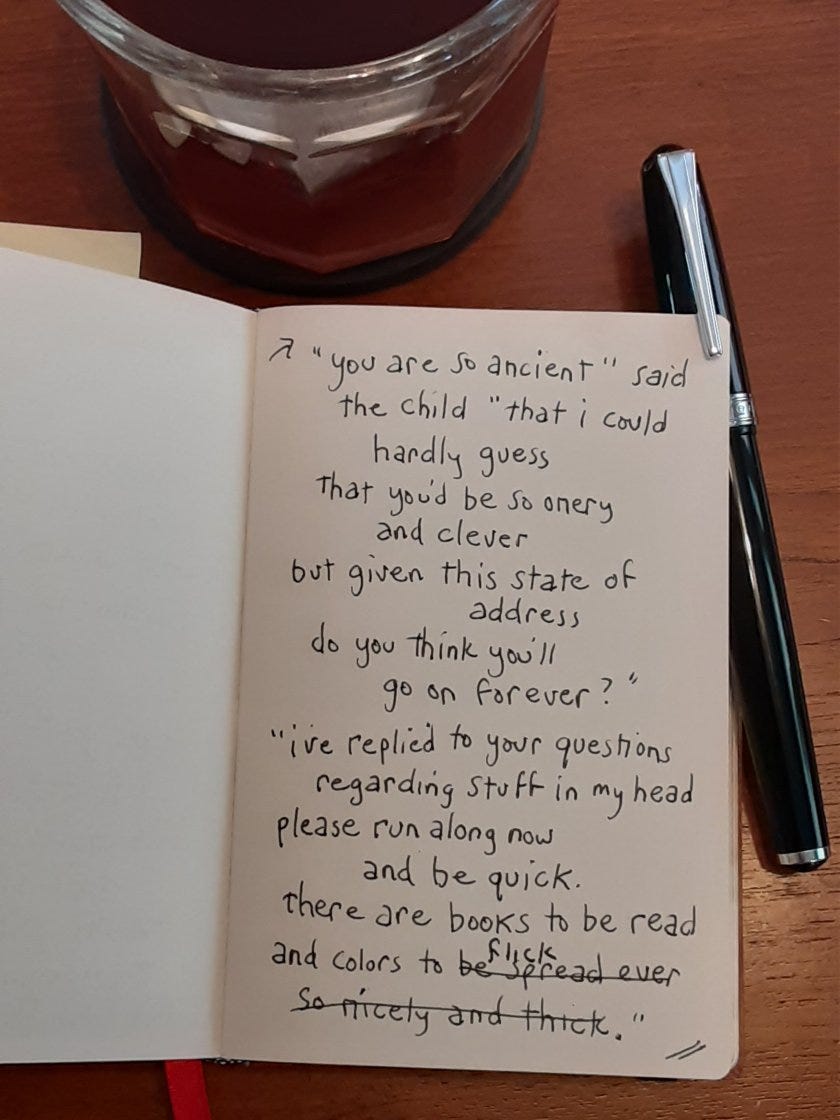 ↗ "you are so ancient" said
the child "that i could
hardly guess
that you'd be so onery
and clever
but given this state of
address
do you think you'll
go on forever?"
"i've replied to your questions
regarding stuff in my head
please run along now
and be quick.
there are books to be read
flick
and colors to be spread ever
so nicely and thick."